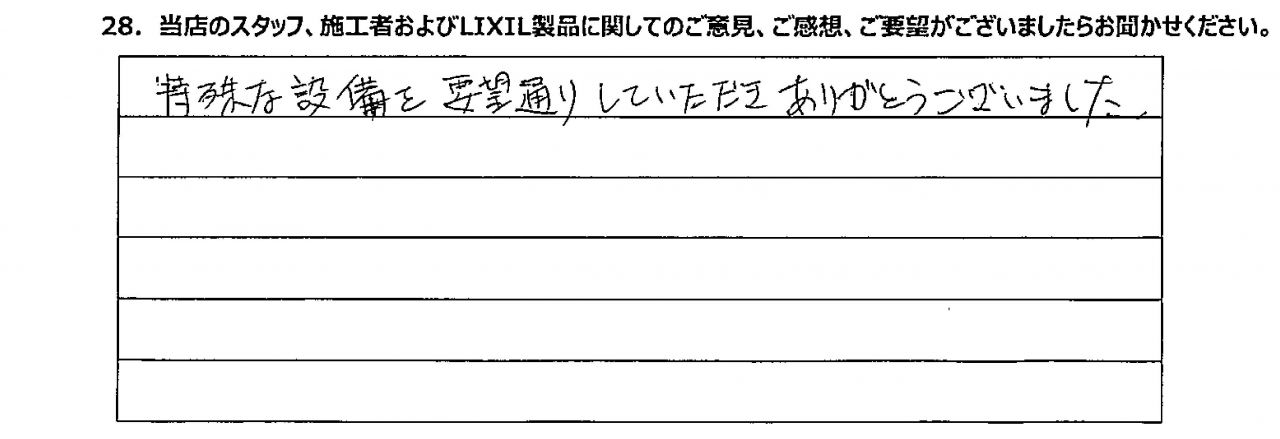 28．当店のスタッフ、施工者およびLIXIL製品に関してのご意見、ご感想、ご要望がございましたらお聞かせください。
特殊な設備を要望通りしていただきありがとうございました、